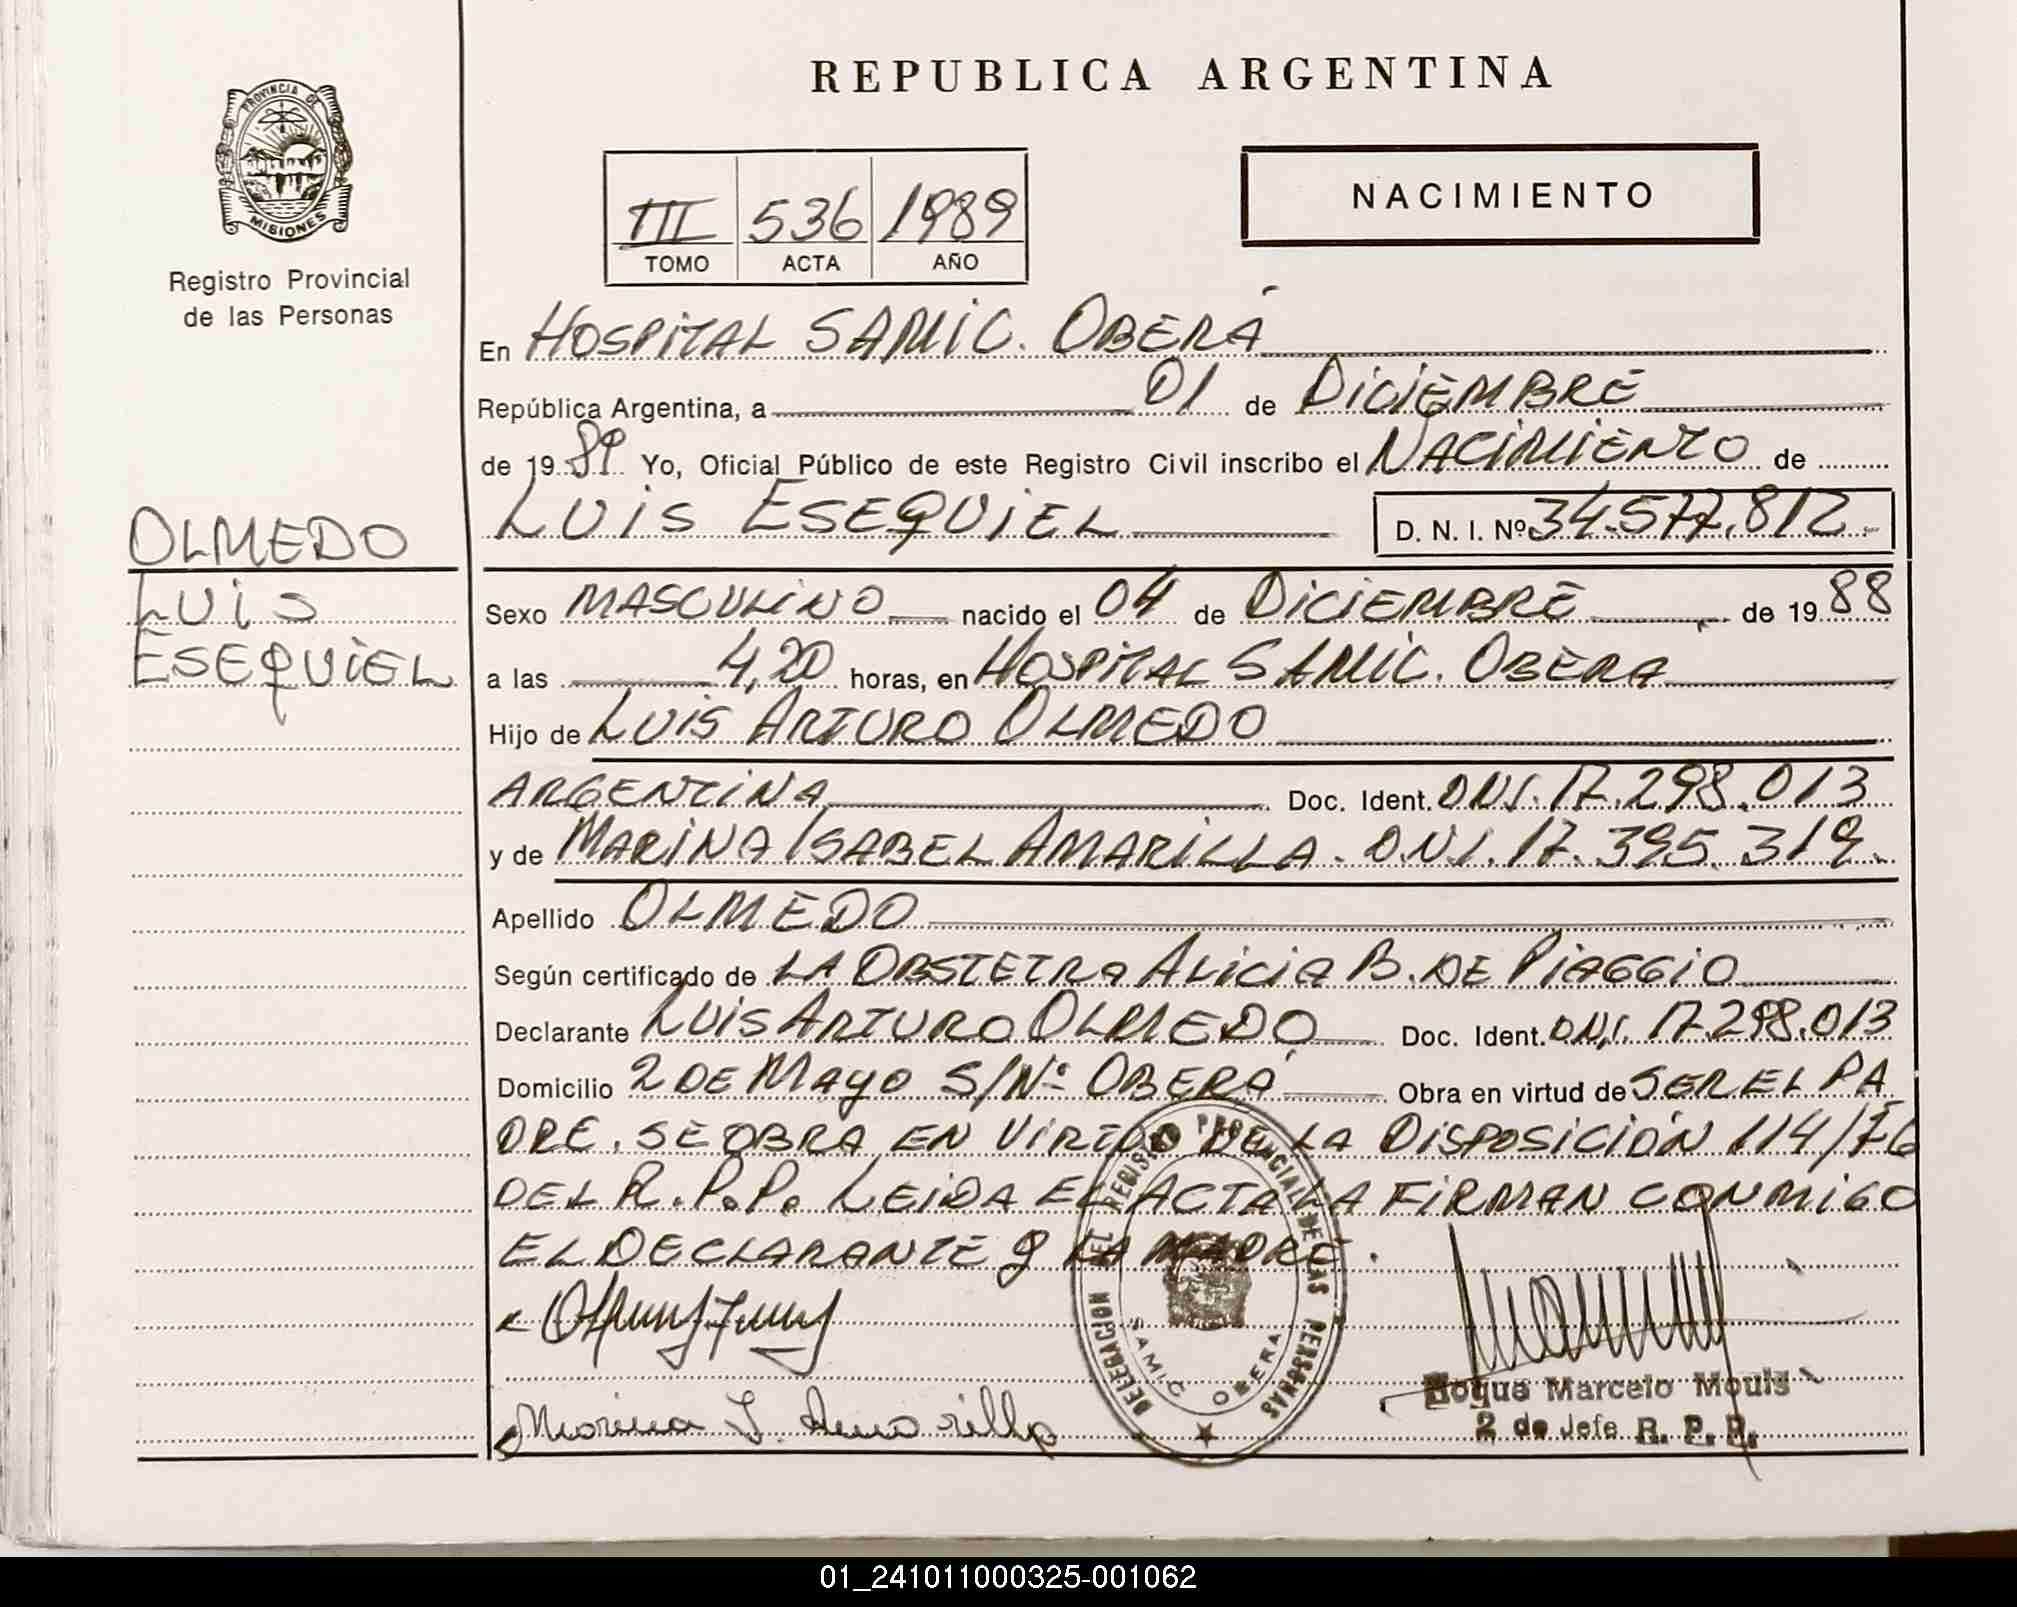 REPUBLICA ARGENTINA
PROVINCIA DE
MISIONES
Registro Provincial
de las Personas
III 536 1989
TOMO ACTA AÑO
NACIMIENTO
En HOSPITAL SAMIC. OBERÁ
República Argentina, a 01 de DICIEMBRE
de 1989 Yo, Oficial Público de este Registro Civil inscribo el NACIMIENTO de
LUIS ESEQUIEL D. N. I. Nº 34.577.812
OLMEDO
LUIS
ESEQUIEL
Sexo MASCULINO nacido el 04 de DICIEMBRE de 1988
a las 4,20 horas, en HOSPITAL SAMIC. OBERA
Hijo de LUIS ARTURO OLMEDO
ARGENTINA Doc. Ident. DNI. 17.298.013
y de MARINA ISABEL AMARILLA. D.N.I. 17.395.319.
Apellido OLMEDO
Según certificado de LA OBSTETRA ALICIA B. DE PIAGGIO
Declarante LUIS ARTURO OLMEDO Doc. Ident. DNI. 17.298.013
Domicilio 2 DE MAYO S/Nº OBERÁ Obra en virtud de SER EL PA
DRE. SE OBRA EN VIRTUD DE LA DISPOSICIÓN 114/76
DEL R.P.P. LEIDA EL ACTA LA FIRMAN CONMIGO
EL DECLARANTE y LA MADRE.
DELEGACION DEL REGISTRO PROVINCIAL DE LAS PERSONAS
SAMIC OBERA
Marina I. Amarilla
Roque Marcelo Mouis
2 do Jefe R. P. P.
01_241011000325-001062